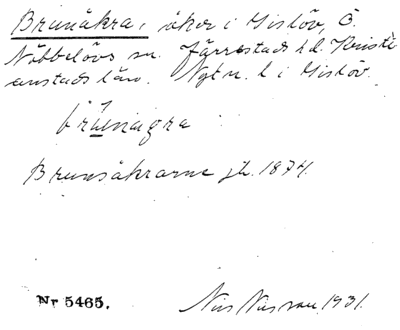 Brunåkra, åker i Gislöv, Ö.
Nöbbelövs sn. Järrestads hd. Kristi-
anstads län. Nyt n. l i Gislöv.
brúnagra
Brunsåkrarne jb. 1874.
Nr 5465.
Nils Nilsson, 1931.